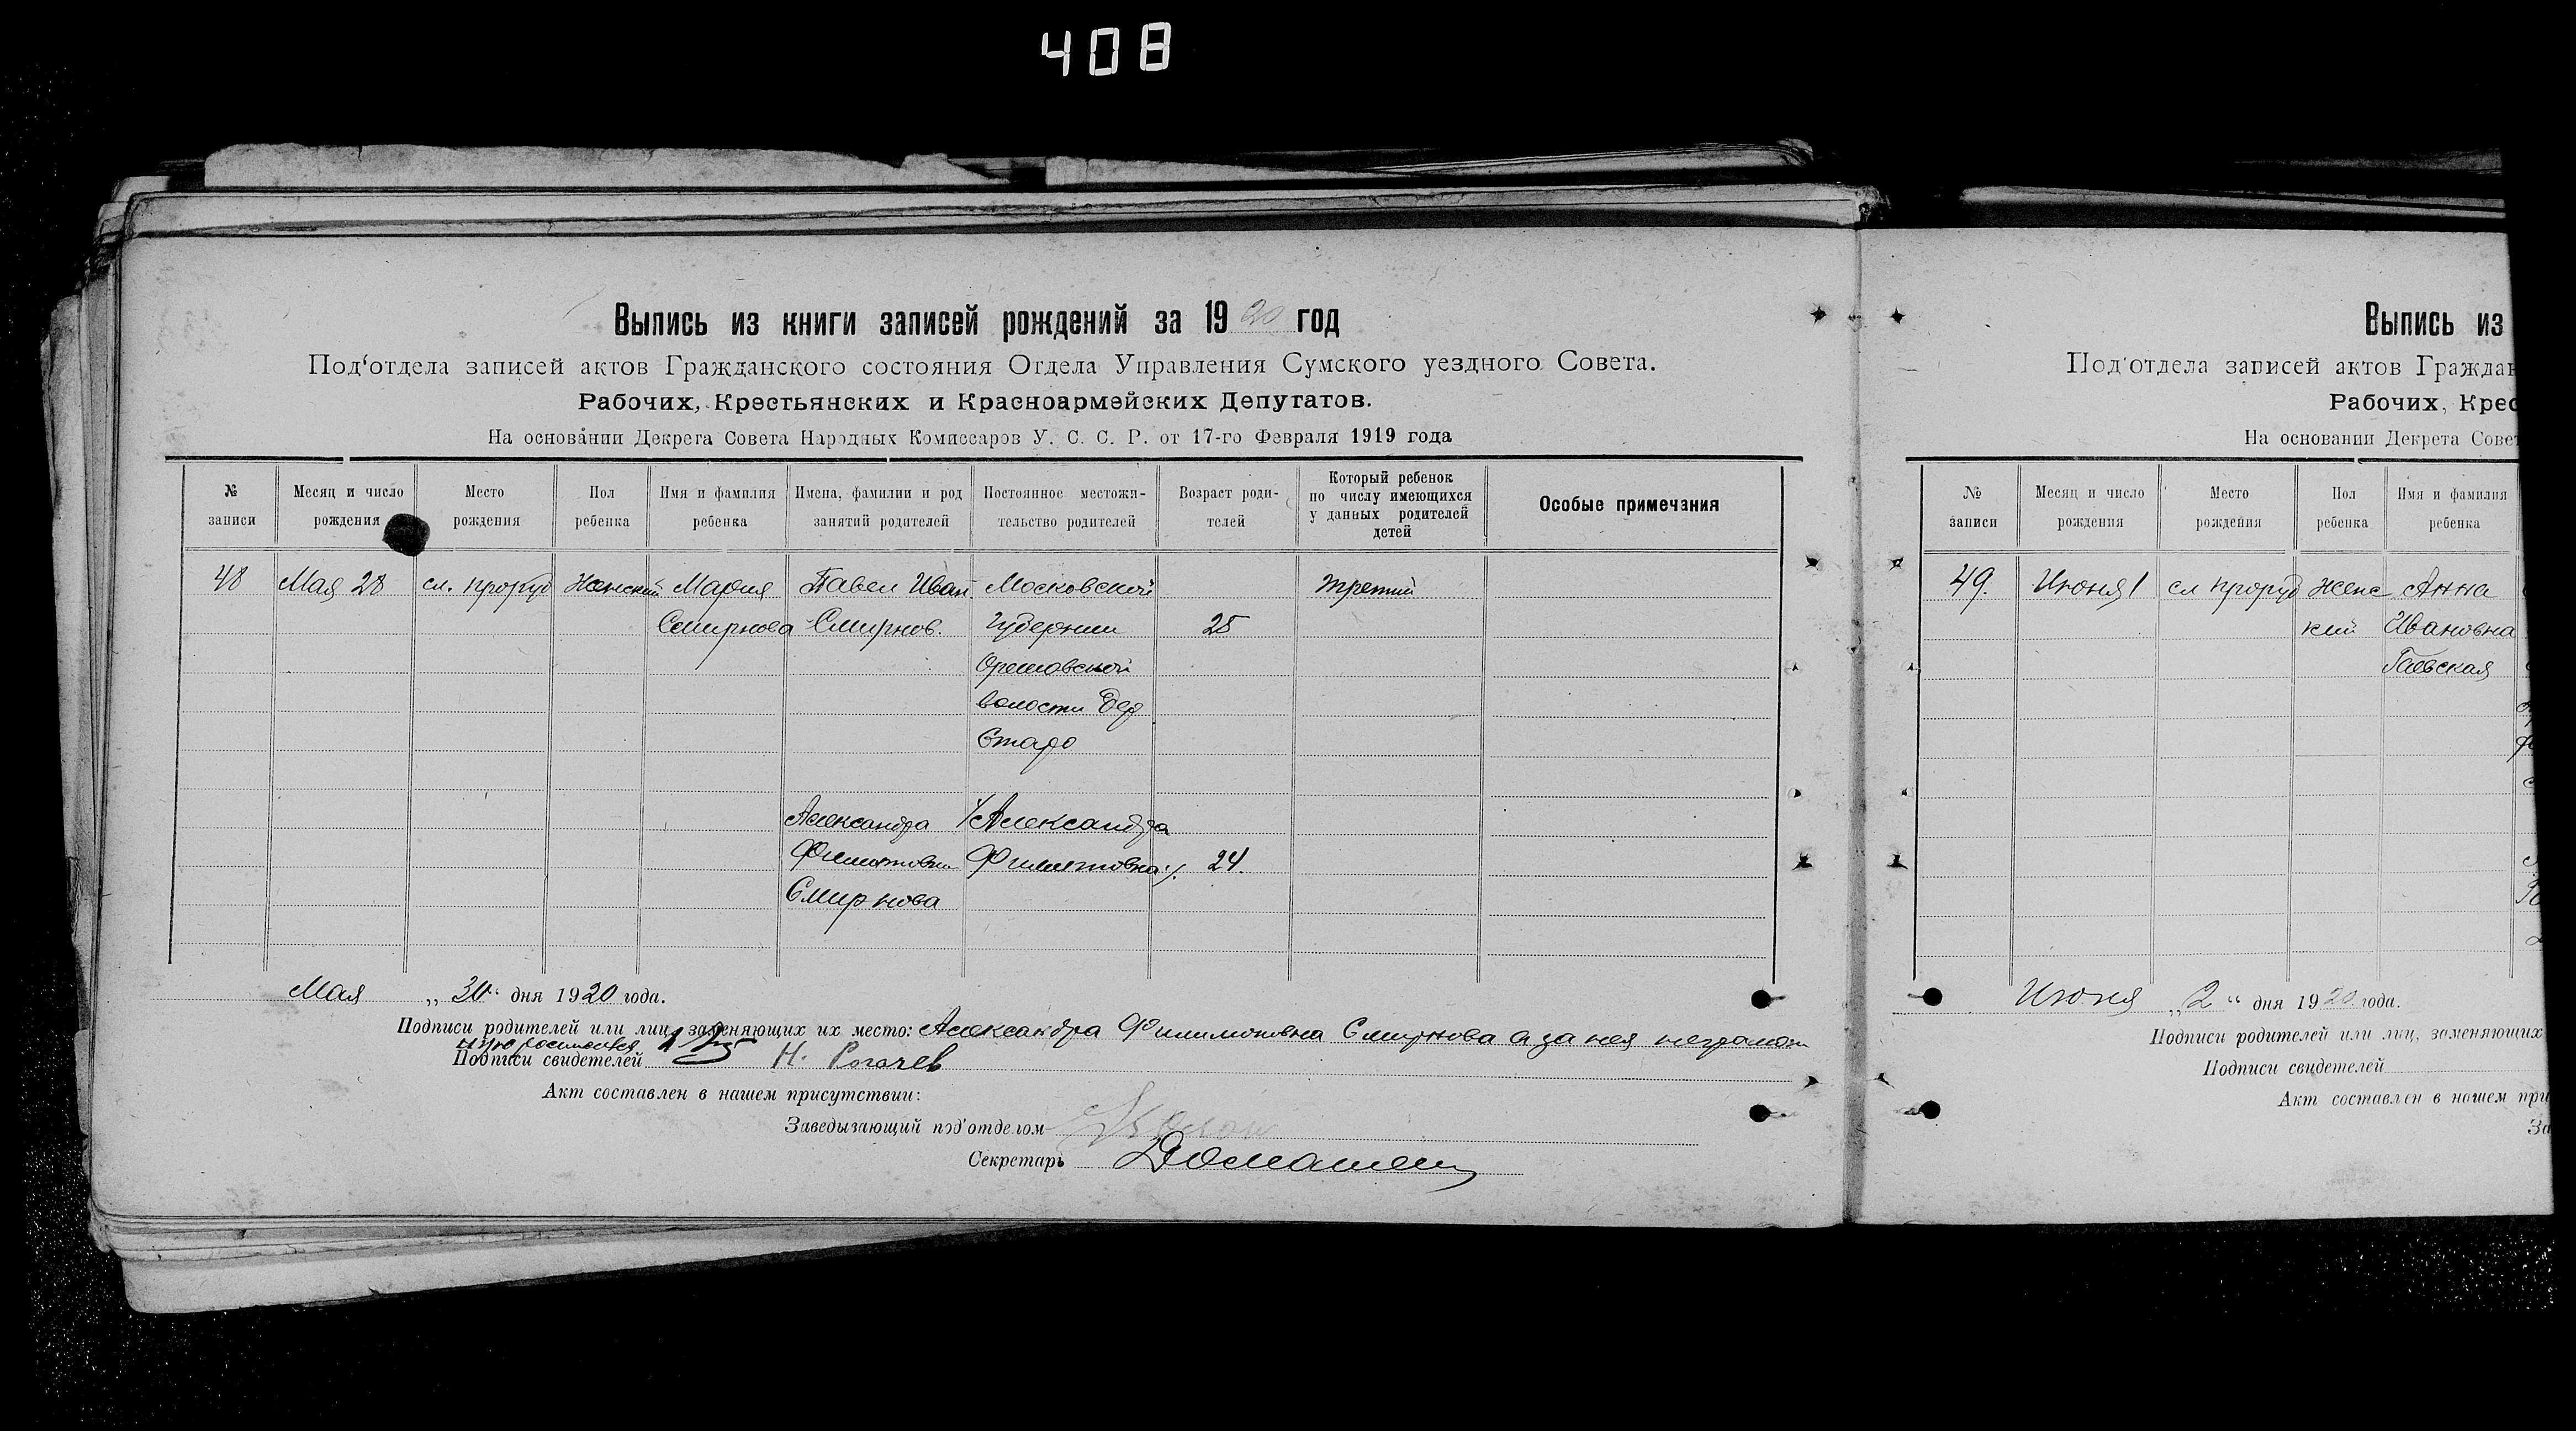 408
Выпись из книги записей рождений за 1920 год
Под'отдела записей актов Гражданского состояния Отдела Управления Сумского уездного Совета.
Рабочих, Крестьянских и Красноармейских Депутатов.
На основании Декрета Совета Народных Комиссаров У. С. С. Р. от 17-го Февраля 1919 года
№ записи
Месяц и число рождения
Место рождения
Пол ребенка
Имя и фамилия ребенка
Имена, фамилии и род занятий родителей
Постоянное местожительство родителей
Возраст родителей
Который ребенок по числу имеющихся у данных родителей детей
Особые примечания
48 Мая 28 сл. Проруб Женский Мария Павел Иван. Московской третий
Смирнова Смирнов. Губернии 25
Ореховской
волости Дер
Старо
Александра Александра
Филимтовна 24.
Смирнова
Мая „30" дня 1920 года.
Подписи родителей или лиц, заменяющих их место: Александра Филимоновна Смирнова а за нея неграмот
Подписи свидетелей Н. Рогачев
Акт составлен в нашем присутствии:
Заведызающий под'отделом
Секретарь
Выпись из
Под'отдела записей актов Граждан
Рабочих, Крес
На основании Декрета Совет
№ записи
Месяц и число рождения
Место рождения
Пол ребенка
Имя и фамилия ребенка
49. Июня 1 сл Проруб женс Анна
кий Ивановна
Гаевская
Июня „2" дня 1920 года.
Подписи родителей или лиц, заменяющих
Подписи свидетелей
Акт составлен в нашем при
За